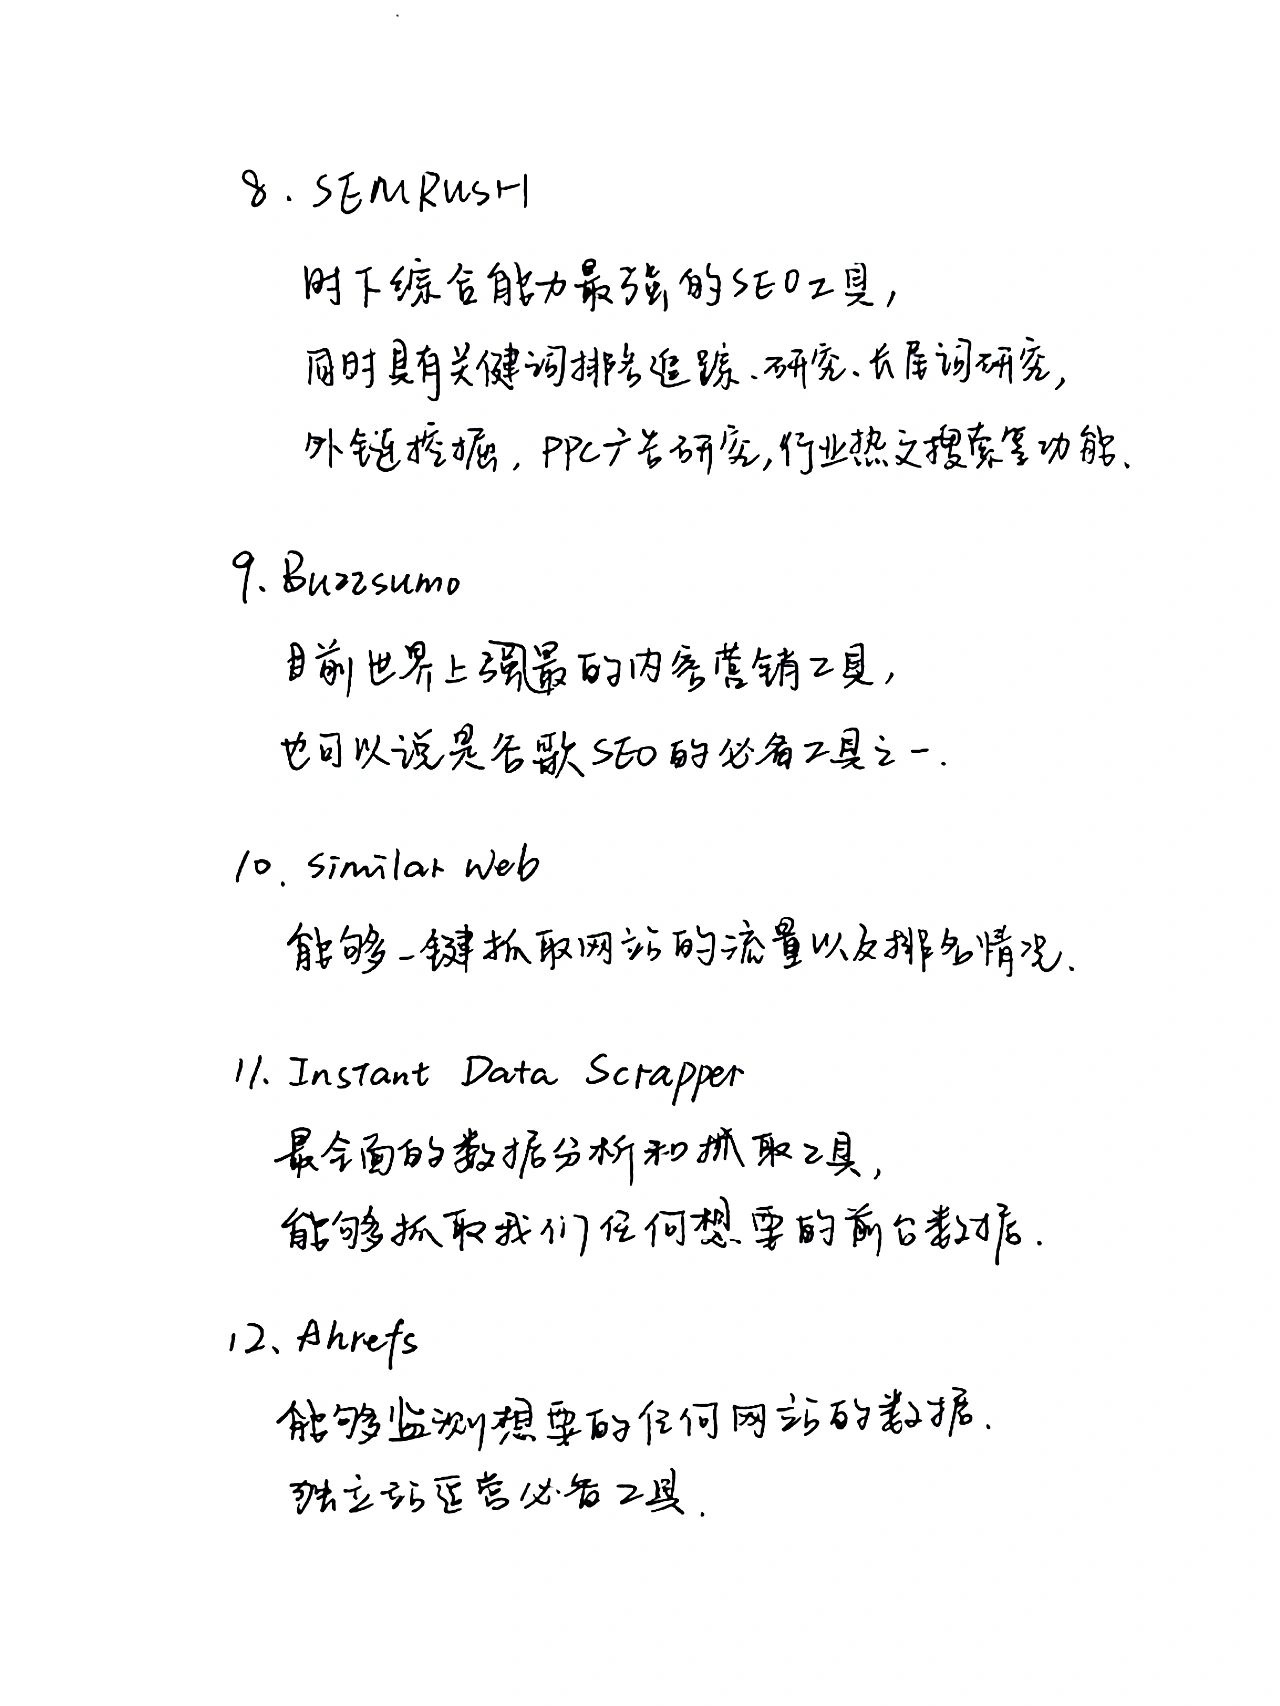 8. SEMRUSH
时下综合能力最强的SEO工具,
同时具有关健词排名追踪、研究、长尾词研究,
外链挖掘, PPC广告研究,行业热文搜索等功能、
9、Buzzsumo
目前世界上强最的内容营销工具,
也可以说是谷歌SEO的必备工具之一.
10、Similar Web
能够一键抓取网站的流量以及排名情况、
11、Instant Data Scrapper
最全面的数据分析和抓取工具,
能够抓取我们任何想要的前台数据.
12、Ahrefs
能够监测想要的任何网站的数据.
独立站运营必备工具.